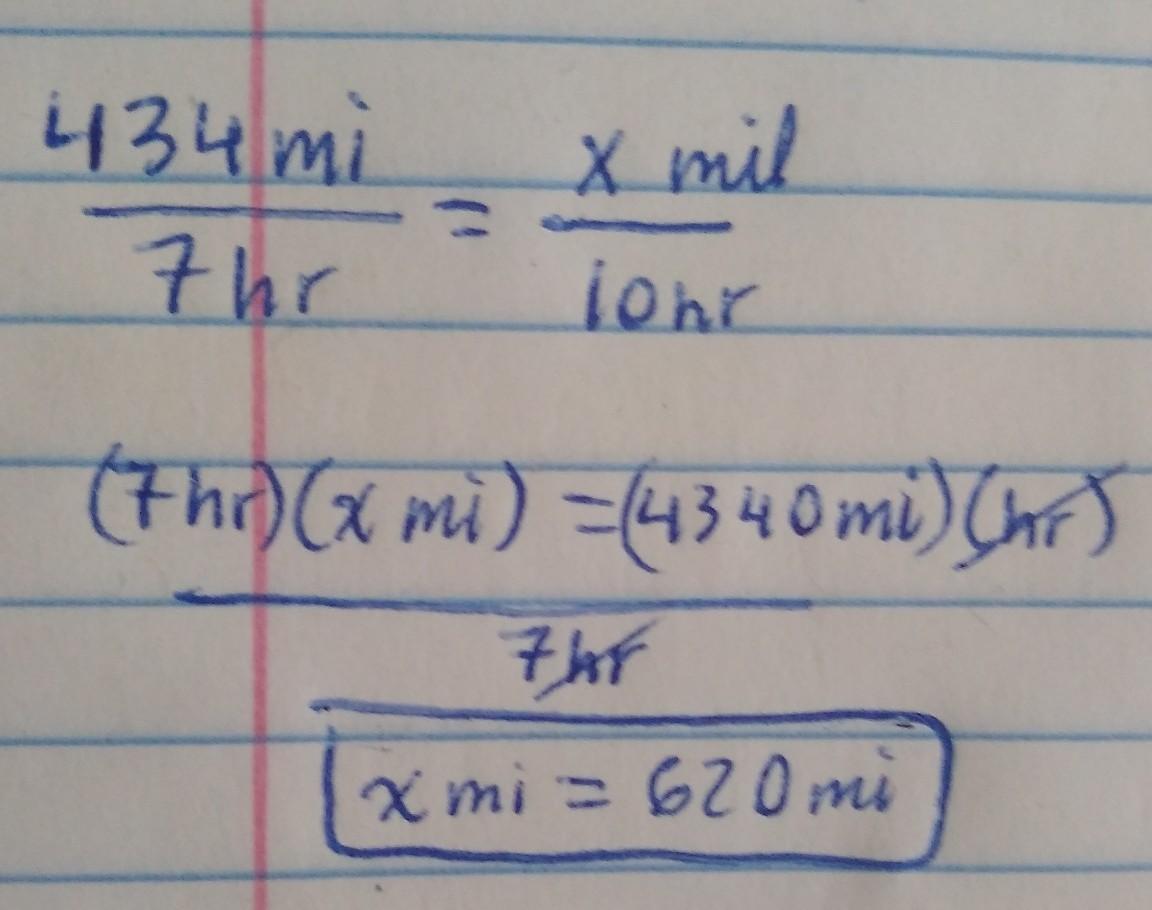 434 mi / 7 hr = x mil / 10 hr
(7 hr)(x mi) = (4340 mi)(hr)
7 hr
x mi = 620 mi